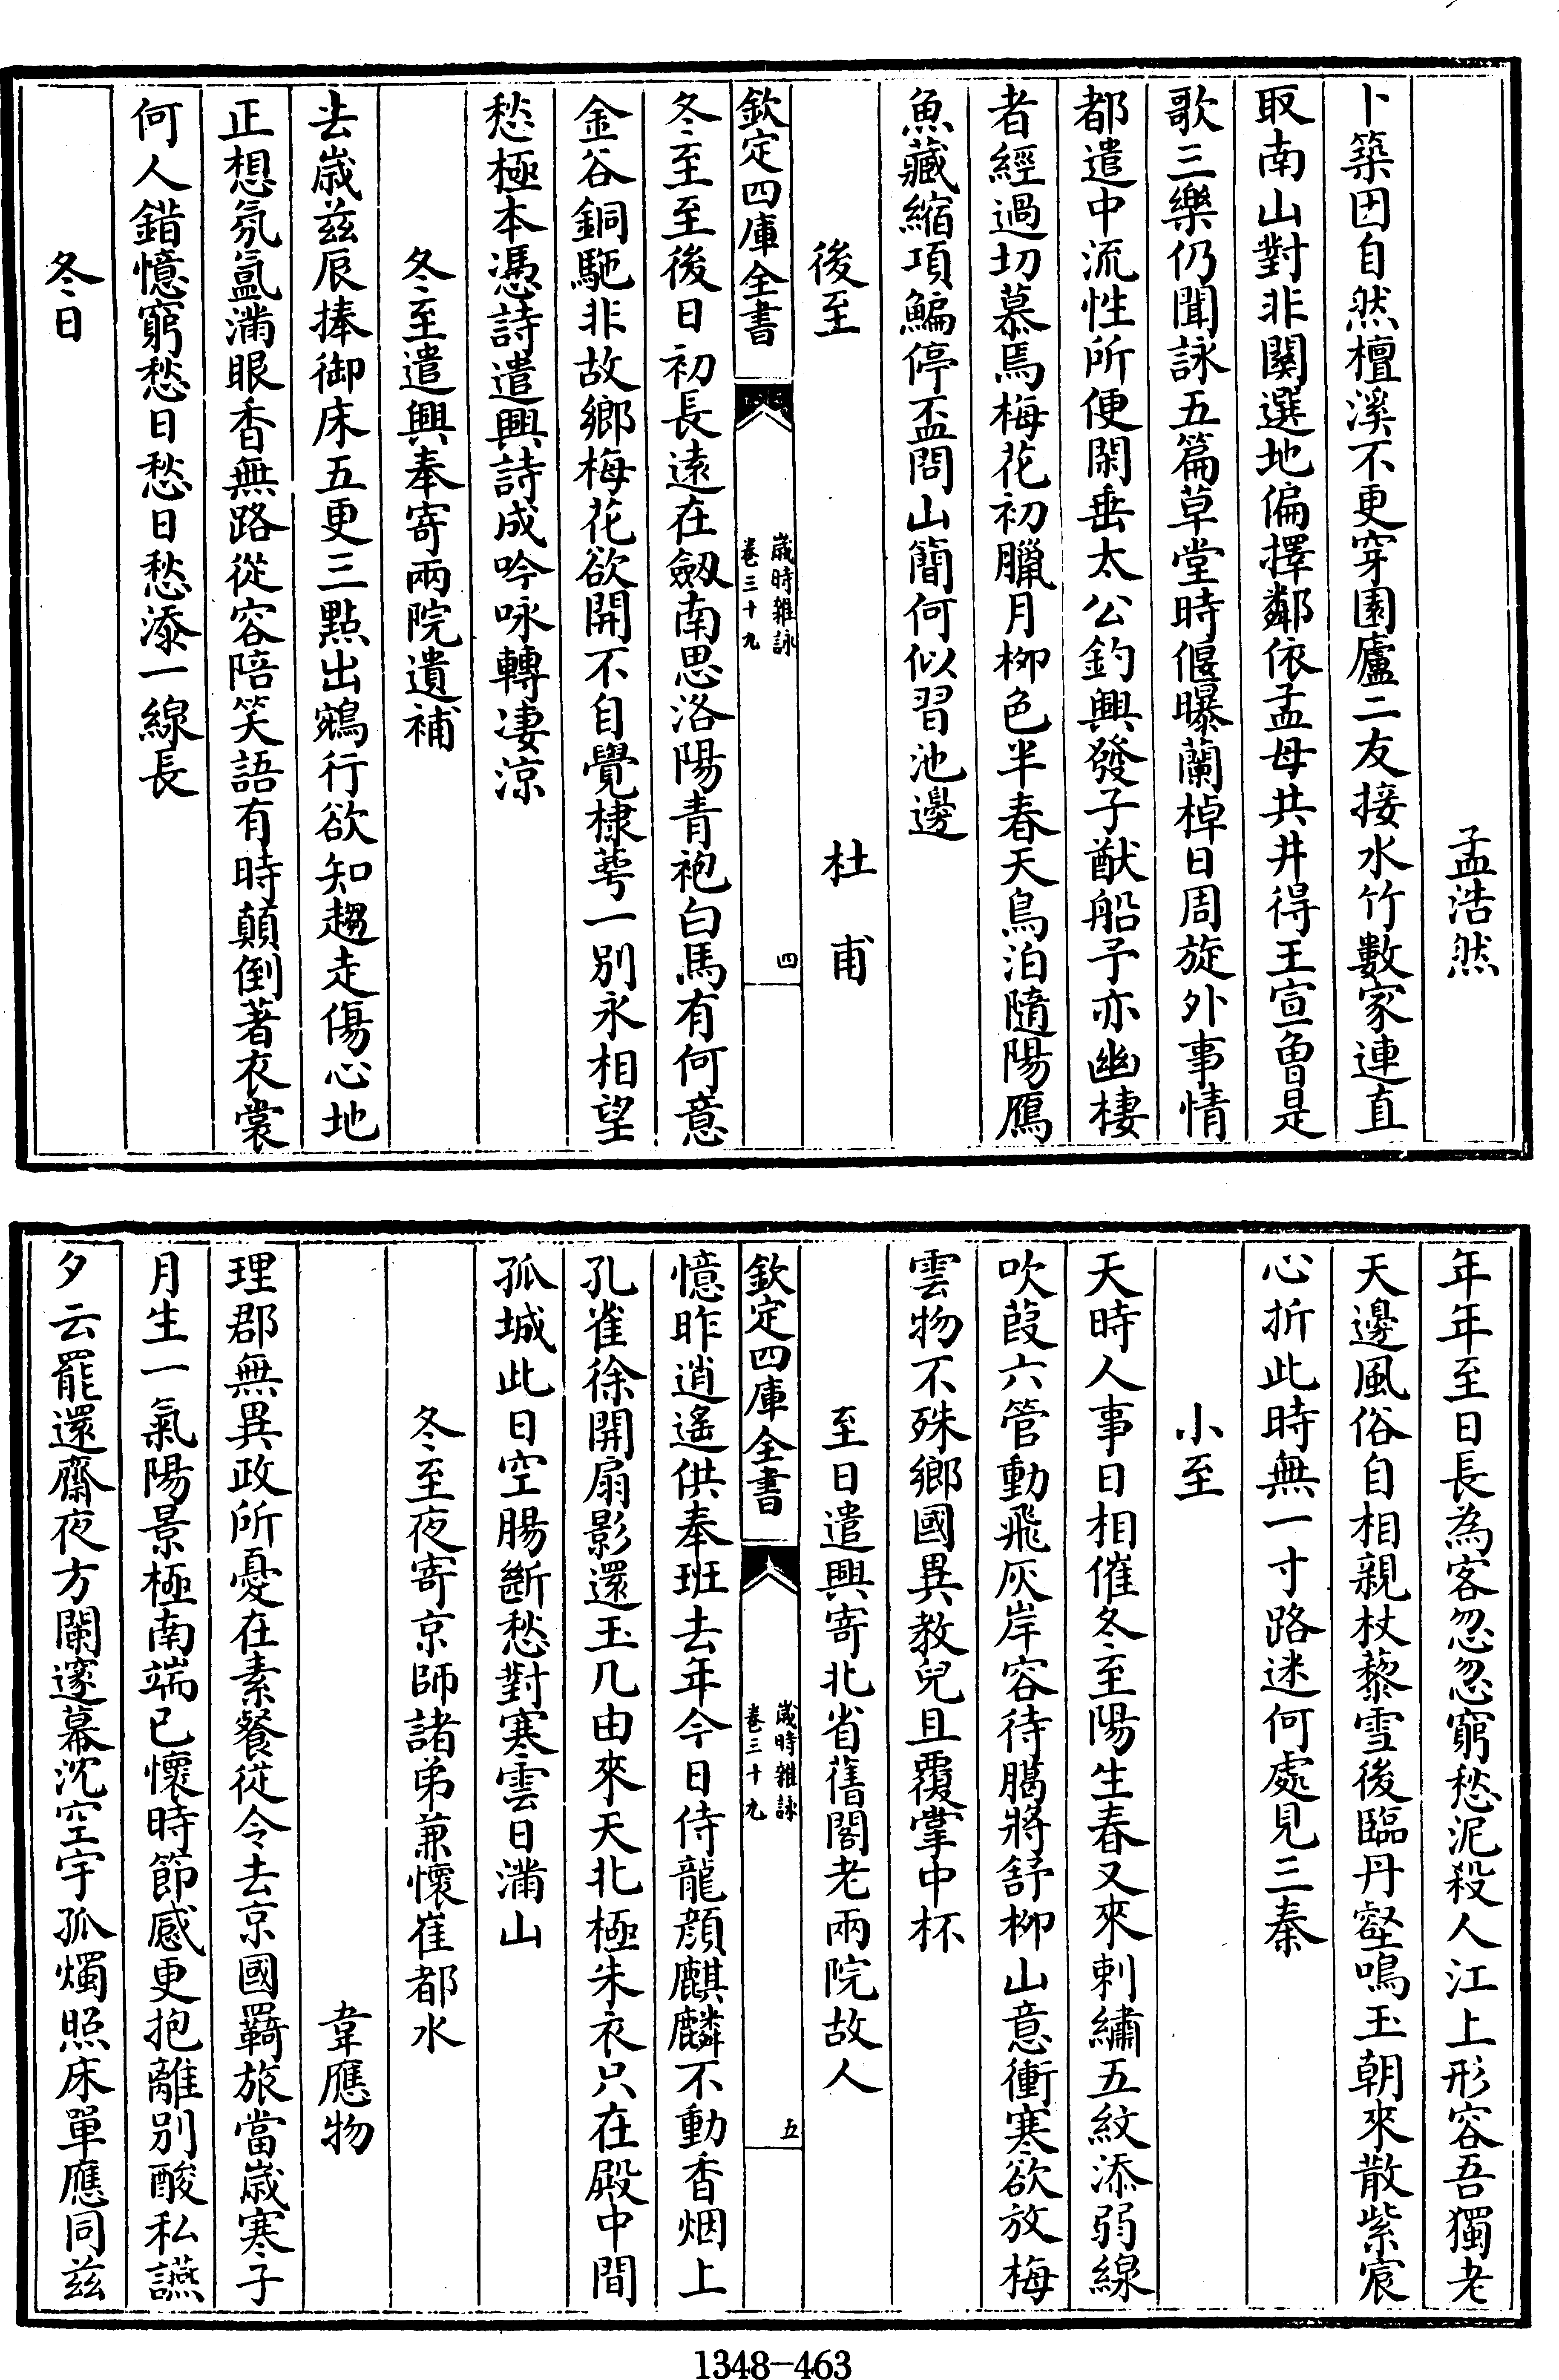 孟浩然
卜築因自然檀溪不更穿園廬二友接水竹數家連直
取南山對非關選地偏擇鄰依孟母共井得王宣曾是
歌三樂仍聞詠五篇草堂時偃曝蘭棹日周旋外事情
都遣中流性所便閑垂太公釣興發子猷船予亦幽棲
者經過切慕焉梅花初臘月栁色半春天鳥泊隨陽鴈
魚藏縮項鯿停盃問山簡何似習池邊
後至　杜甫
欽定四庫全書　歲時雜詠　卷三十九　四
冬至至後日初長遠在劒南思洛陽青袍白馬有何意
金谷銅駞非故鄉梅花欲開不自覺棣萼一別永相望
愁極本憑詩遣興詩成吟咏轉淒涼
冬至遣興奉寄兩院遺補
去歲茲辰捧御床五更三點出鵷行欲知趨走傷心地
正想氛氳滿眼香無路從容陪笑語有時顛倒著衣裳
何人錯憶窮愁日愁日愁添一線長
冬日
年年至日長為客忽忽窮愁泥殺人江上形容吾獨老
天邊風俗自相親杖藜雪後臨丹壑鳴玉朝來散紫宸
心折此時無一寸路迷何處見三秦
小至
天時人事日相催冬至陽生春又來刺繡五紋添弱線
吹葭六管動飛灰岸容待臈將舒栁山意衝寒欲放梅
雲物不殊鄉國異教兒且覆掌中杯
至日遣興寄北省舊閣老兩院故人
欽定四庫全書　歲時雜詠　卷三十九　五
憶昨逍遙供奉班去年今日侍龍顔麒麟不動香烟上
孔雀徐開扇影還玉几由來天北極朱衣只在殿中間
孤城此日空腸斷愁對寒雲日滿山
冬至夜寄京師諸弟兼懷崔都水
韋應物
理郡無異政所憂在素餐從令去京國羇旅當歲寒子
月生一氣陽景極南端已懷時節感更抱離別酸私讌
夕云罷還齋夜方闌邃幕沉空宇孤燭照床單應同茲
1348-463